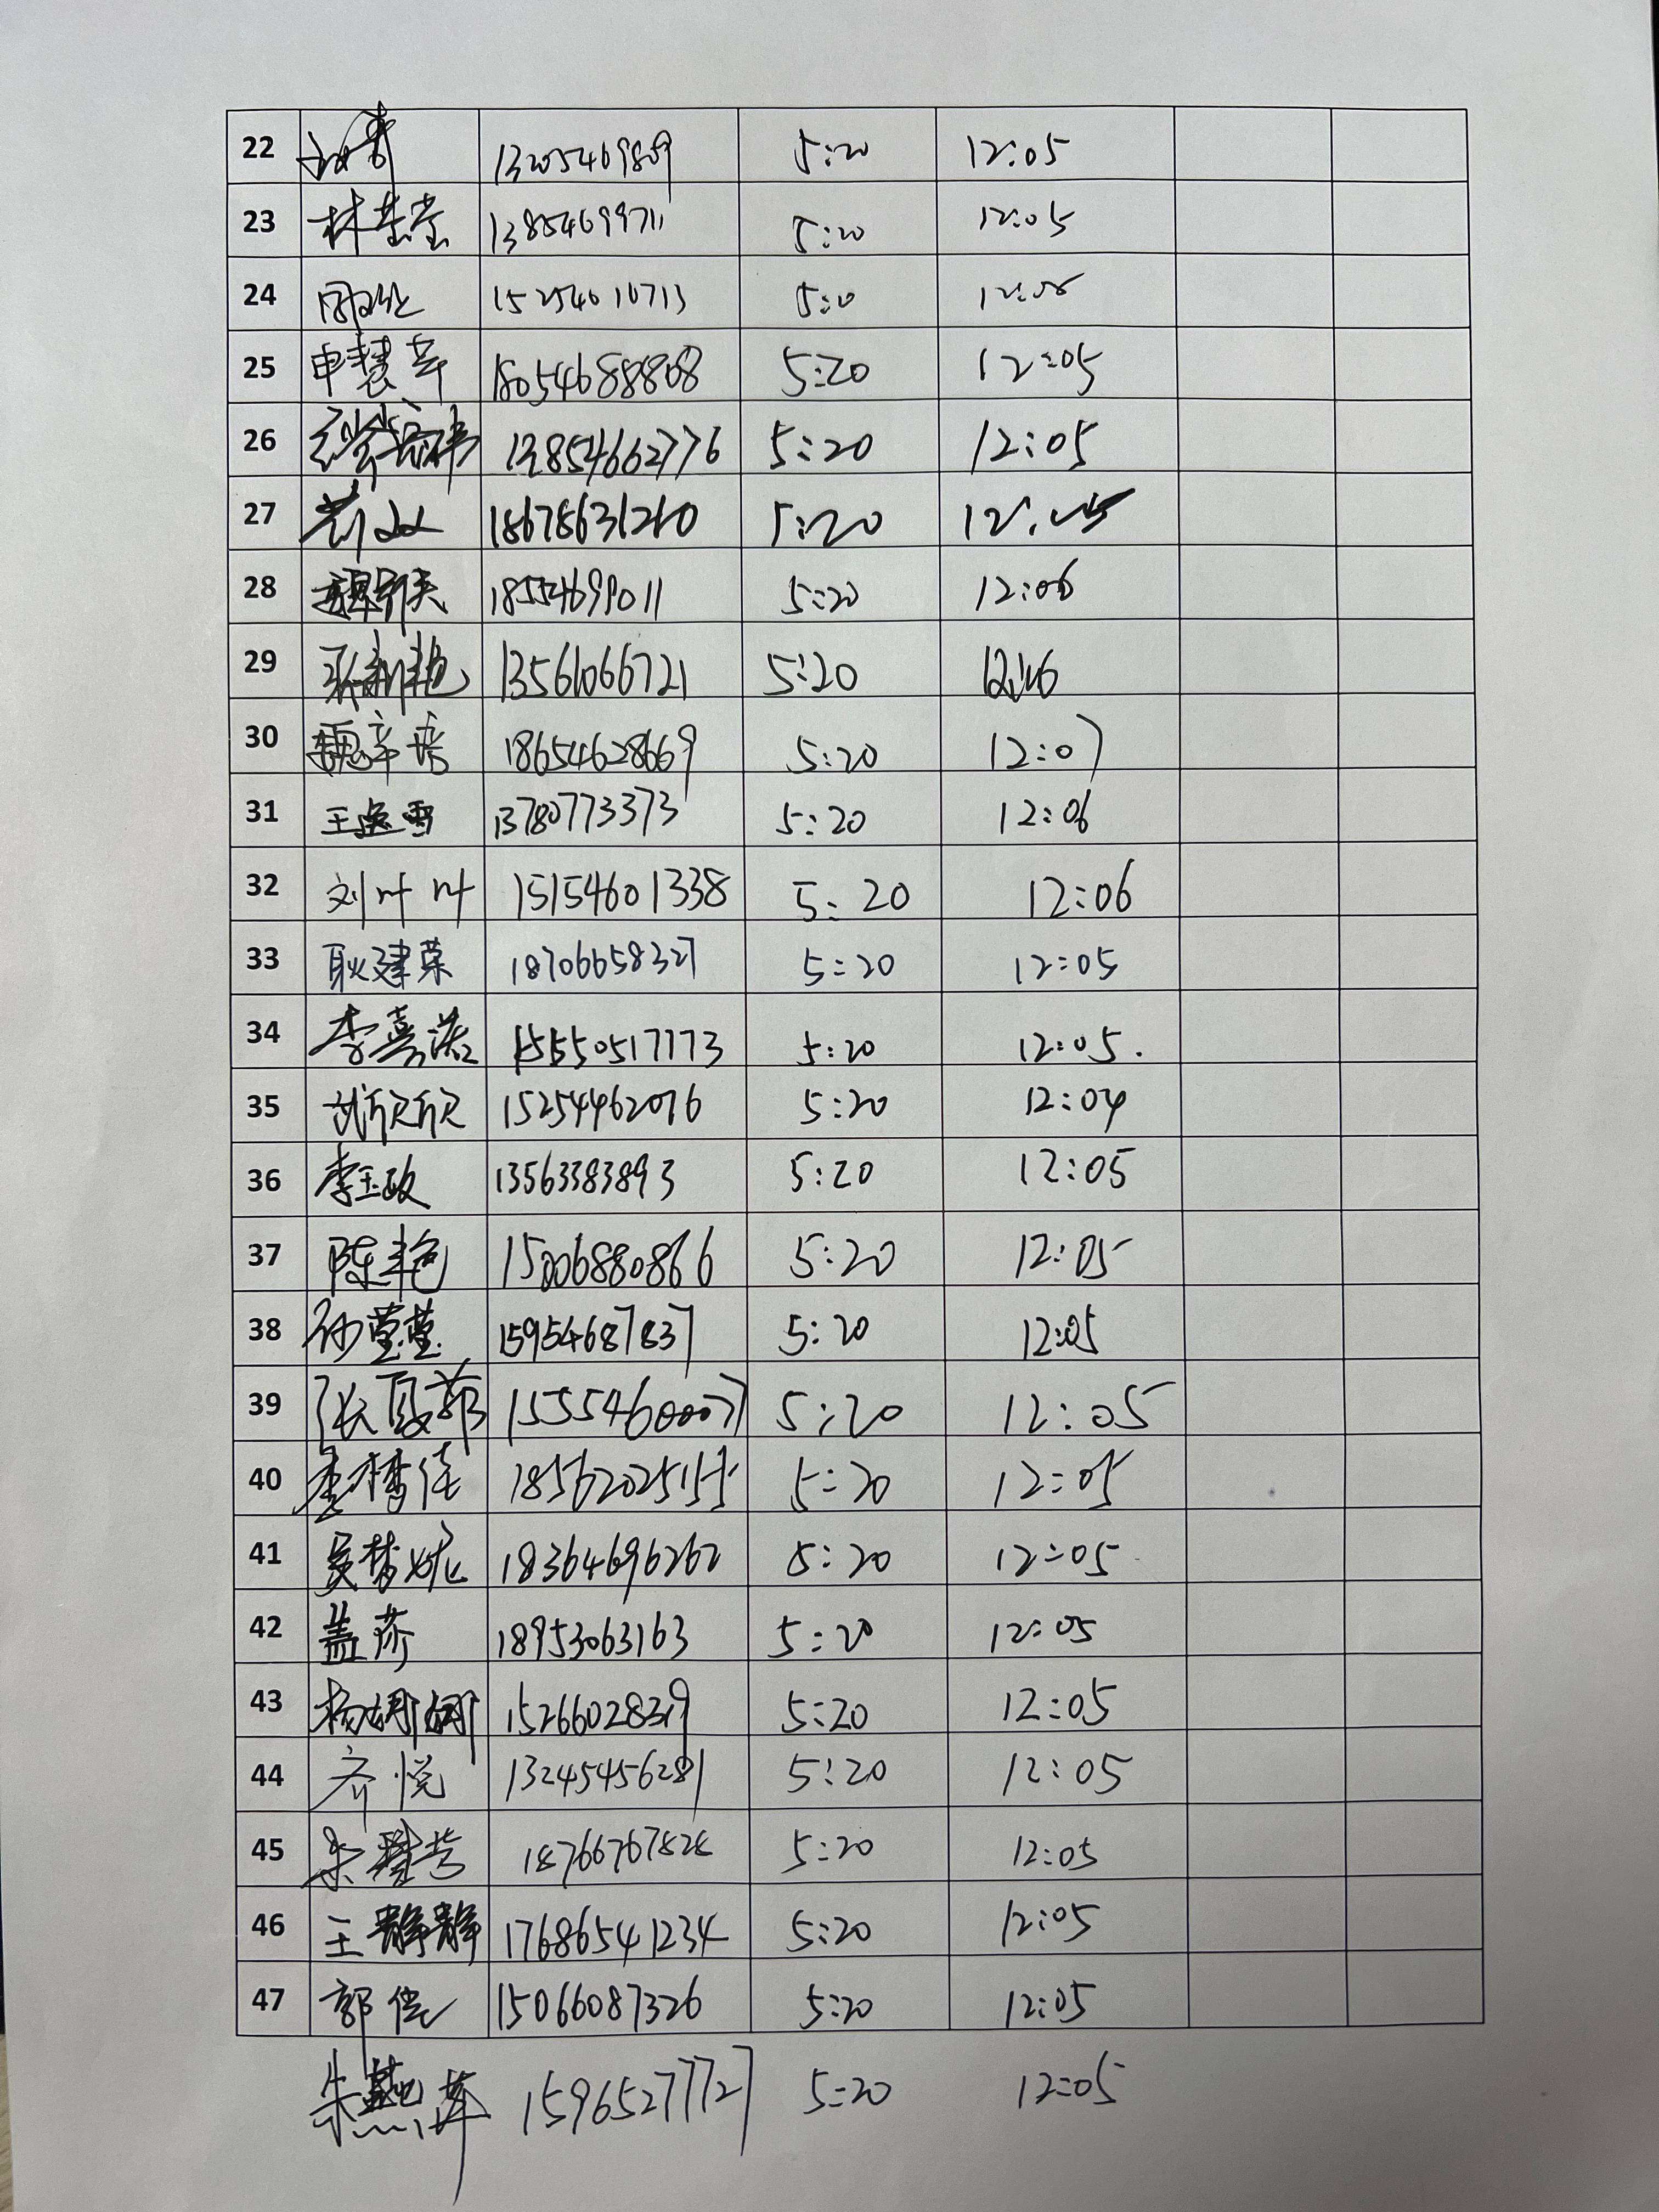 22 13205469809 5:20 12:05
23 林莹莹 13854699711 5:20 12:05
24 15254610713 5:20 12:05
25 申慧辛 18054688868 5:20 12:05
26 13854662776 5:20 12:05
27 18678631210 5:20 12:05
28 18554699011 5:20 12:06
29 张新艳 13561066721 5:20 12:06
30 18654628669 5:20 12:07
31 王孟雪 13780773373 5:20 12:06
32 刘叶叶 15154601338 5:20 12:06
33 耿建荣 18706658327 5:20 12:05
34 李嘉滢 15550517173 5:20 12:05.
35 武欣欣 15254462076 5:20 12:04
36 李玉政 13563383893 5:20 12:05
37 陈艳 15006880866 5:20 12:05
38 孙莹莹 15954687837 5:20 12:05
39 张夏茹 15554600077 5:20 12:05
40 18562025155 5:20 12:05
41 吴梦妮 18364696262 5:20 12:05
42 盖莎 18953063163 5:20 12:05
43 杨娜娜 15266028319 5:20 12:05
44 齐悦 13245456281 5:20 12:05
45 18766767828 5:20 12:05
46 王静静 17686541234 5:20 12:05
47 郭佳 15066087326 5:20 12:05
朱燕萍 15965277727 5:20 12:05